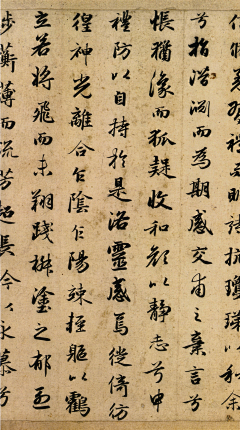 禮而明詩抗瓊珶以和余
兮指潛淵而為期感交甫之棄言兮
悵猶豫而狐疑收和顏以靜志兮申
禮防以自持於是洛靈感焉徙倚彷
徨神光離合乍陰乍陽竦輕軀以鶴
立若將飛而未翔踐椒塗之郁烈
步蘅薄而流芳超長吟以永慕兮